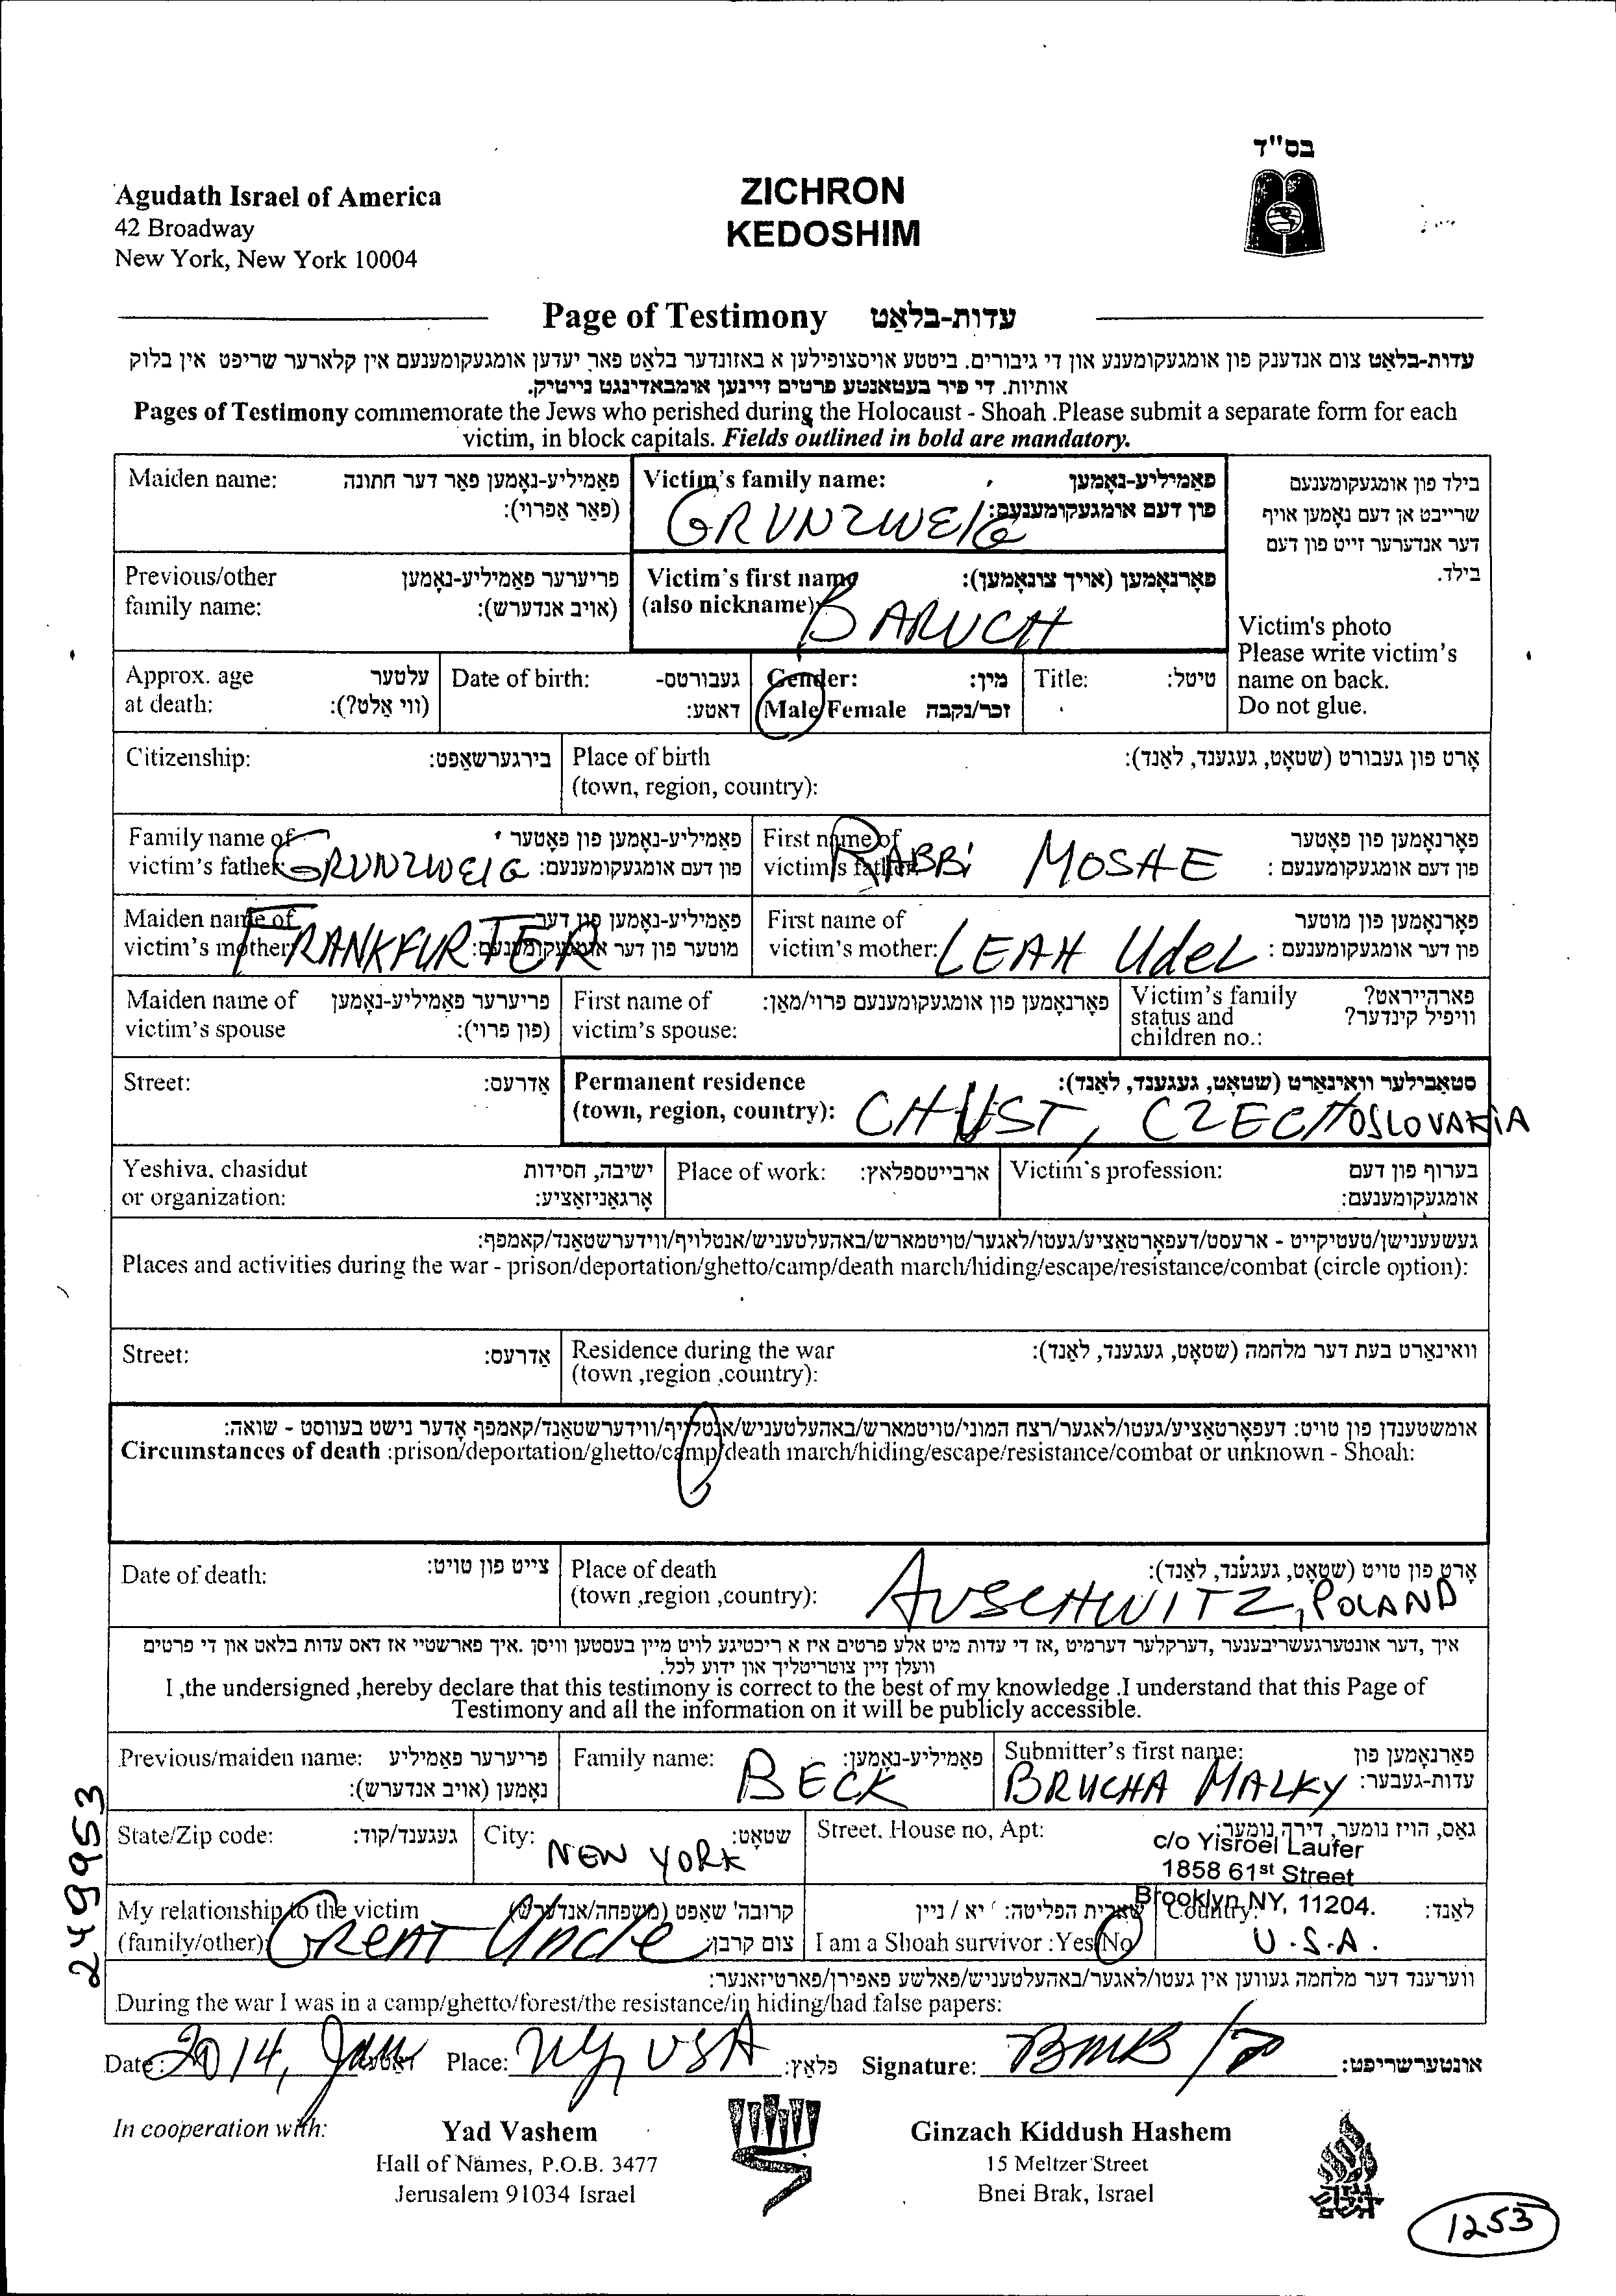 בס"ד
Agudath Israel of America
42 Broadway
New York, New York 10004
ZICHRON
KEDOSHIM
Page of Testimony עדות-בלאַט
עדות-בלאַט צום אנדענק פון אומגעקומענע און די גיבורים. ביטטע אויסצופילען א באזונדער בלאַט פאר יעדען אומגעקומענעם אין קלארער שריפט אין בלוק
אותיות. די פיר בעטאנטע פרטים זיינען אומבאדינגט נייטיק.
Pages of Testimony commemorate the Jews who perished during the Holocaust - Shoah .Please submit a separate form for each
victim, in block capitals. Fields outlined in bold are mandatory.
Maiden name: פאַמיליע-נאָמען פאר דער חתונה
(פאַר אַפרוי):
Victim's family name: פאַמיליע-נאָמען
פון דעם אומגעקומענעם:
GRUNZWEIG
בילד פון אומגעקומענעם
שרייבט אן דעם נאָמען אויף
דער אנדערער זייט פון דעם
בילד.
Victim's photo
Please write victim's
name on back.
Do not glue.
Previous/other פריערער פאַמיליע-נאָמען
family name: (אויב אנדערש):
Victim's first name פאָרנאָמען (אויך צונאָמען):
(also nickname)
BARUCH
Approx. age עלטער
at death: (ווי אַלט?):
Date of birth: געבורטס-
דאַטע:
Gender: מין:
Male/Female זכר/נקבה
Title: טיטל:
Citizenship: בירגערשאַפט:
Place of birth אָרט פון געבורט (שטאָט, געגענד, לאַנד):
(town, region, country):
Family name of פאַמיליע-נאָמען פון פאָטער
victim's father: GRUNZWEIG פון דעם אומגעקומענעם:
First name of פאָרנאָמען פון פאָטער
victim's father RABBi MOSHE פון דעם אומגעקומענעם :
Maiden name of פאַמיליע-נאָמען פון דער
victim's mother FRANKFURTER מוטער פון דער אומגעקומענעם:
First name of פאָרנאָמען פון מוטער
victim's mother: LEAH UdeL פון דער אומגעקומענעם :
Maiden name of פריערער פאַמיליע-נאָמען
victim's spouse (פון פרוי):
First name of פאָרנאָמען פון אומגעקומענעם פרוי/מאַן:
victim's spouse:
Victim's family פארהייראט?
status and וויפיל קינדער?
children no.:
Street: אַדרעס:
Permanent residence סטאַבילער וואוינאָרט (שטאָט, געגענד, לאַנד):
(town, region, country): CHUST, CZECHOSLOVAKiA
Yeshiva, chasidut ישיבה, חסידות
or organization: אָרגאַניזאַציע:
Place of work: ארבייטספלאַץ:
Victim's profession: בערוף פון דעם
אומגעקומענעם:
געשעענישן/טעטיקייט - ארעסט/דעפאָרטאַציע/געטו/לאגער/טויטמארש/באהעלטעניש/אנטלויף/ווידערשטאַנד/קאמפף:
Places and activities during the war - prison/deportation/ghetto/camp/death march/hiding/escape/resistance/combat (circle option):
Street: אַדרעס:
Residence during the war וואוינאָרט בעת דער מלחמה (שטאָט, געגענד, לאַנד):
(town ,region ,country):
אומשטענדן פון טויט: דעפאָרטאַציע/געטו/לאגער/רצח המוני/טויטמארש/באהעלטעניש/אנטלויף/ווידערשטאַנד/קאמפף אָדער נישט בעוווסט - שואה:
Circumstances of death :prison/deportation/ghetto/camp/death march/hiding/escape/resistance/combat or unknown - Shoah:
Date of death: צייט פון טויט:
Place of death אָרט פון טויט (שטאָט, געגענד, לאַנד):
(town ,region ,country): AUSCHWITZ, POLAND
איך ,דער אונטערגעשריבענער ,דערקלער דערמיט ,אז די עדות מיט אלע פרטים איז א ריכטיגע לויט מיין בעסטען וויסן .איך פארשטיי אז דאס עדות בלאט און די פרטים
וועלן זיין צוטריטליך און ידוע לכל.
I ,the undersigned ,hereby declare that this testimony is correct to the best of my knowledge .I understand that this Page of
Testimony and all the information on it will be publicly accessible.
Previous/maiden name: פריערער פאַמיליע
נאָמען (אויב אנדערש):
Family name: פאַמיליע-נאָמען:
BECK
Submitter's first name: פאָרנאָמען פון
עדות-געבער:
BRUCHA MALKY
State/Zip code: געגענד/קוד:
City: שטאָט:
NEW YORK
Street. House no, Apt: גאַס, הויז נומער, דירה נומער:
c/o Yisroel Laufer
1858 61st Street
Brooklyn NY, 11204.
My relationship to the victim קרובה' שאַפט (משפחה/אנדערש)
(family/other) Great Uncle צום קרבן:
שארית הפליטה: יא / ניין
I am a Shoah survivor :Yes/No
Country: לאַנד:
U.S.A.
ווערענד דער מלחמה געווען אין געטו/לאגער/באהעלטעניש/פאלשע פאפירן/פארטיזאנער:
During the war I was in a camp/ghetto/forest/the resistance/in hiding/had false papers:
Date: 2014, Jan דאַטע Place: NY, USA פלאַץ: Signature: BMB אונטערשריפט:
In cooperation with:
Yad Vashem
Hall of Names, P.O.B. 3477
Jerusalem 91034 Israel
Ginzach Kiddush Hashem
15 Meltzer Street
Bnei Brak, Israel
1253
249953